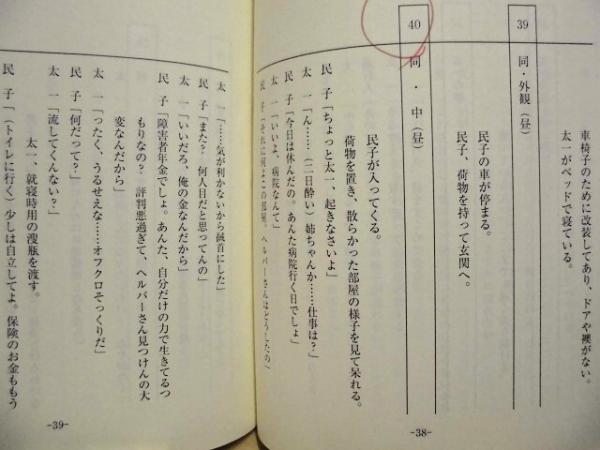 車椅子のために改装してあり、ドアや襖がない。
太一がベッドで寝ている。
39 同・外観(昼)
民子の車が停まる。
民子、荷物を持って玄関へ。
40 同・中(昼)
民子が入ってくる。
荷物を置き、散らかった部屋の様子を見て呆れる。
民子「ちょっと太一、起きなさいよ」
太一「ん……(二日酔い)姉ちゃんか……仕事は?」
民子「今日は休んだの。あんた病院行く日でしょ」
太一「いいよ、病院なんて」
民子「それに何よこの部屋。ヘルパーさんはどうしたの」
-38-
太一「……気が利かないから馘首にした」
民子「また? 何人目だと思ってんの」
太一「いいだろ、俺の金なんだから」
民子「障害者年金でしょ。あんた、自分だけの力で生きてるつ
もりなの? 評判悪過ぎて、ヘルパーさん見つけんの大
変なんだから」
太一「ったく、うるせえな……オフクロそっくりだ」
民子「何だって?」
太一「流してくんない?」
太一、就寝時用の溲瓶を渡す。
民子「(トイレに行く)少しは自立してよ。保険のお金ももう
-39-